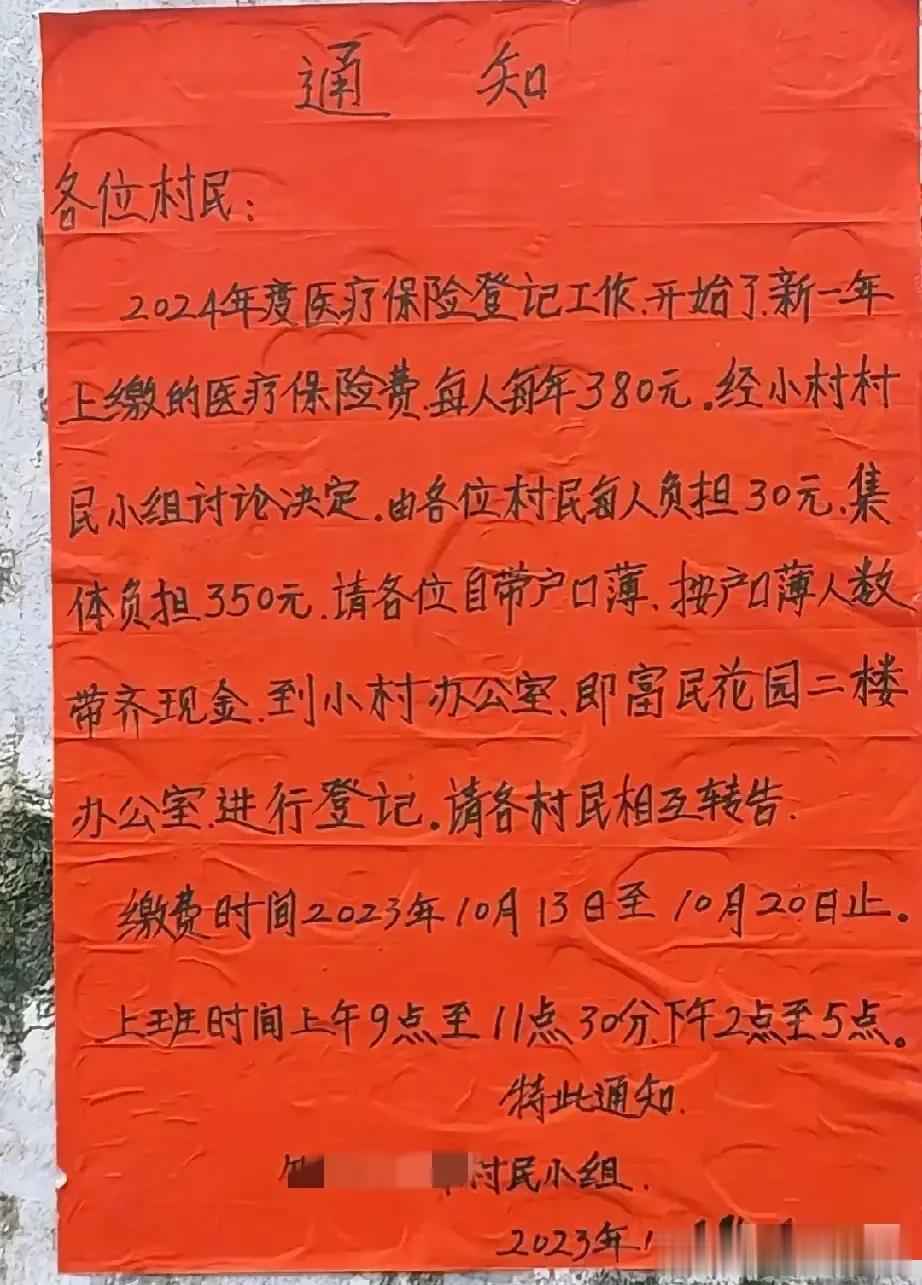 通 知
各位村民：
2024年度医疗保险登记工作.开始了.新一年
上缴的医疗保险费.每人每年380元.经小村村
民小组讨论决定.由各位村民每人负担30元.集
体负担350元.请各位自带户口薄.按户口薄人数
带齐现金.到小村办公室.即富民花园二楼
办公室.进行登记.请各村民相互转告.
缴费时间2023年10月13日至10月20日止。
上班时间上午9点至11点30分.下午2点至5点。
特此通知.
村民小组.
2023年1